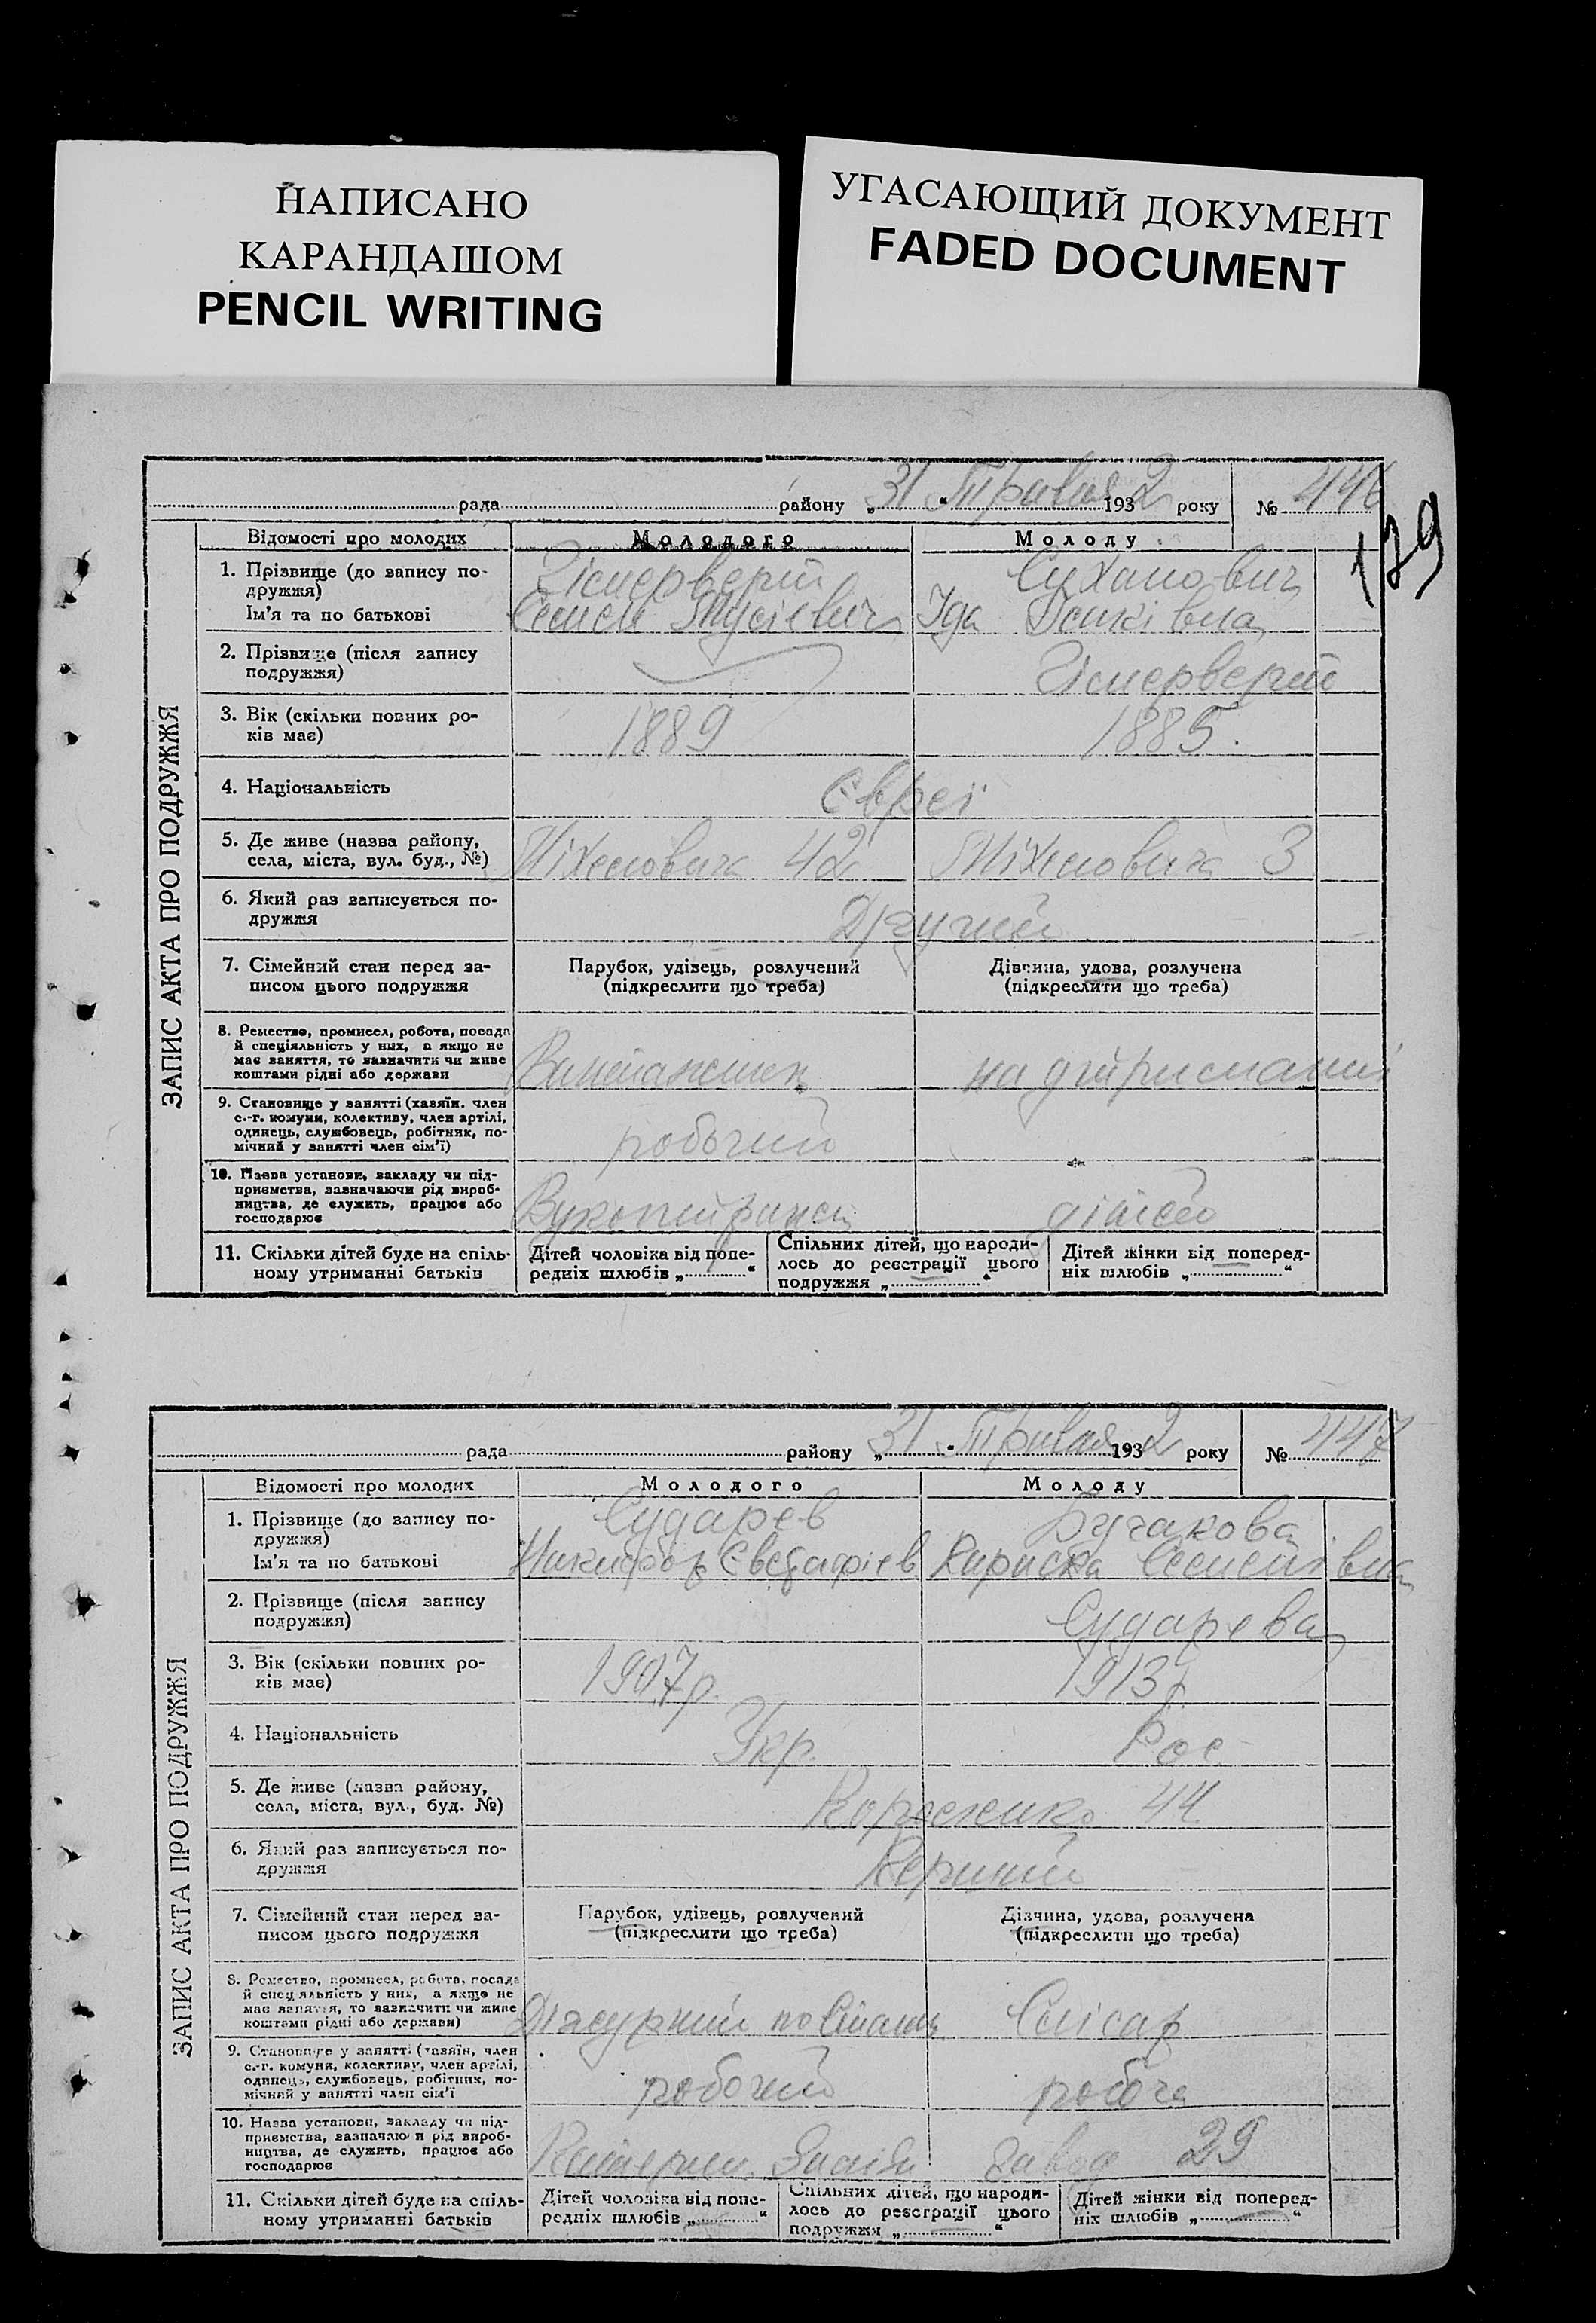 НАПИСАНО
КАРАНДАШОМ
PENCIL WRITING
УГАСАЮЩИЙ ДОКУМЕНТ
FADED DOCUMENT
129
ЗАПИС АКТА ПРО ПОДРУЖЖЯ
рада району „31" Травня 1932 року № 446
Відомості про молодих Молодого Молоду
1. Прізвище (до запису по-
дружжя)
Суханович
Ім'я та по батькові
Іда
2. Прізвище (після запису
подружжя)
3. Вік (скільки повних ро-
ків має) 1889 1885.
4. Національність Євреї
5. Де живе (назва району,
села, міста, вул. буд., №) Міхновича 42 Міхновича 3
6. Який раз записується по-
дружжя Другий
7. Сімейний стан перед за-
писом цього подружжя
Парубок, удівець, розлучений
(підкреслити що треба)
Дівчина, удова, розлучена
(підкреслити що треба)
8. Ремество, промисел, робота, посада
й спеціяльність у них, а якщо не
має заняття, то зазначити чи живе
коштами рідні або держави
на дітей
9. Становище у занятті (хазяїн, член
с.-г. комуни, колективу, член артілі,
одинець, службовець, робітник, по-
мічний у занятті член сім'ї) робочий
10. Назва установи, закладу чи під-
приємства, зазначаючи рід вироб-
ництва, де служить, працює або
господарює
11. Скільки дітей буде на спіль-
ному утриманні батьків
Дітей чоловіка від попе-
редніх шлюбів „ “
Спільних дітей, що народи-
лось до реєстрації цього
подружжя „ “
Дітей жінки від поперед-
ніх шлюбів „ “
ЗАПИС АКТА ПРО ПОДРУЖЖЯ
рада району „31" Травня 1932 року № 447
Відомості про молодих Молодого Молоду
1. Прізвище (до запису по-
дружжя)
Сударев Бугакова
Ім'я та по батькові
Никифор
2. Прізвище (після запису
подружжя) Сударева
3. Вік (скільки повних ро-
ків має) 1907р. 1913р
4. Національність Укр. Рос
5. Де живе (назва району,
села, міста, вул., буд. №) Короленко 44.
6. Який раз записується по-
дружжя Перший
7. Сімейний стан перед за-
писом цього подружжя
Парубок, удівець, розлучений
(підкреслити що треба)
Дівчина, удова, розлучена
(підкреслити що треба)
8. Ремество, промисел, робота, посада
й спеціяльність у них, а якщо не
має заняття, то зазначити чи живе
коштами рідні або держави)
Діжурний по Станц Слісар
9. Становище у занятті (хазяїн, член
с.-г. комуни, колективу, член артілі,
одинець, службовець, робітник, по-
мічний у занятті член сім'ї
робочий робоча
10. Назва установи, закладу чи під-
приємства, зазначаючи рід вироб-
ництва, де служить, працює або
господарює
завод 29
11. Скільки дітей буде на спіль-
ному утриманні батьків
Дітей чоловіка від попе-
редніх шлюбів „ “
Спільних дітей, що народи-
лось до реєстрації цього
подружжя „ “
Дітей жінки від поперед-
ніх шлюбів „ “